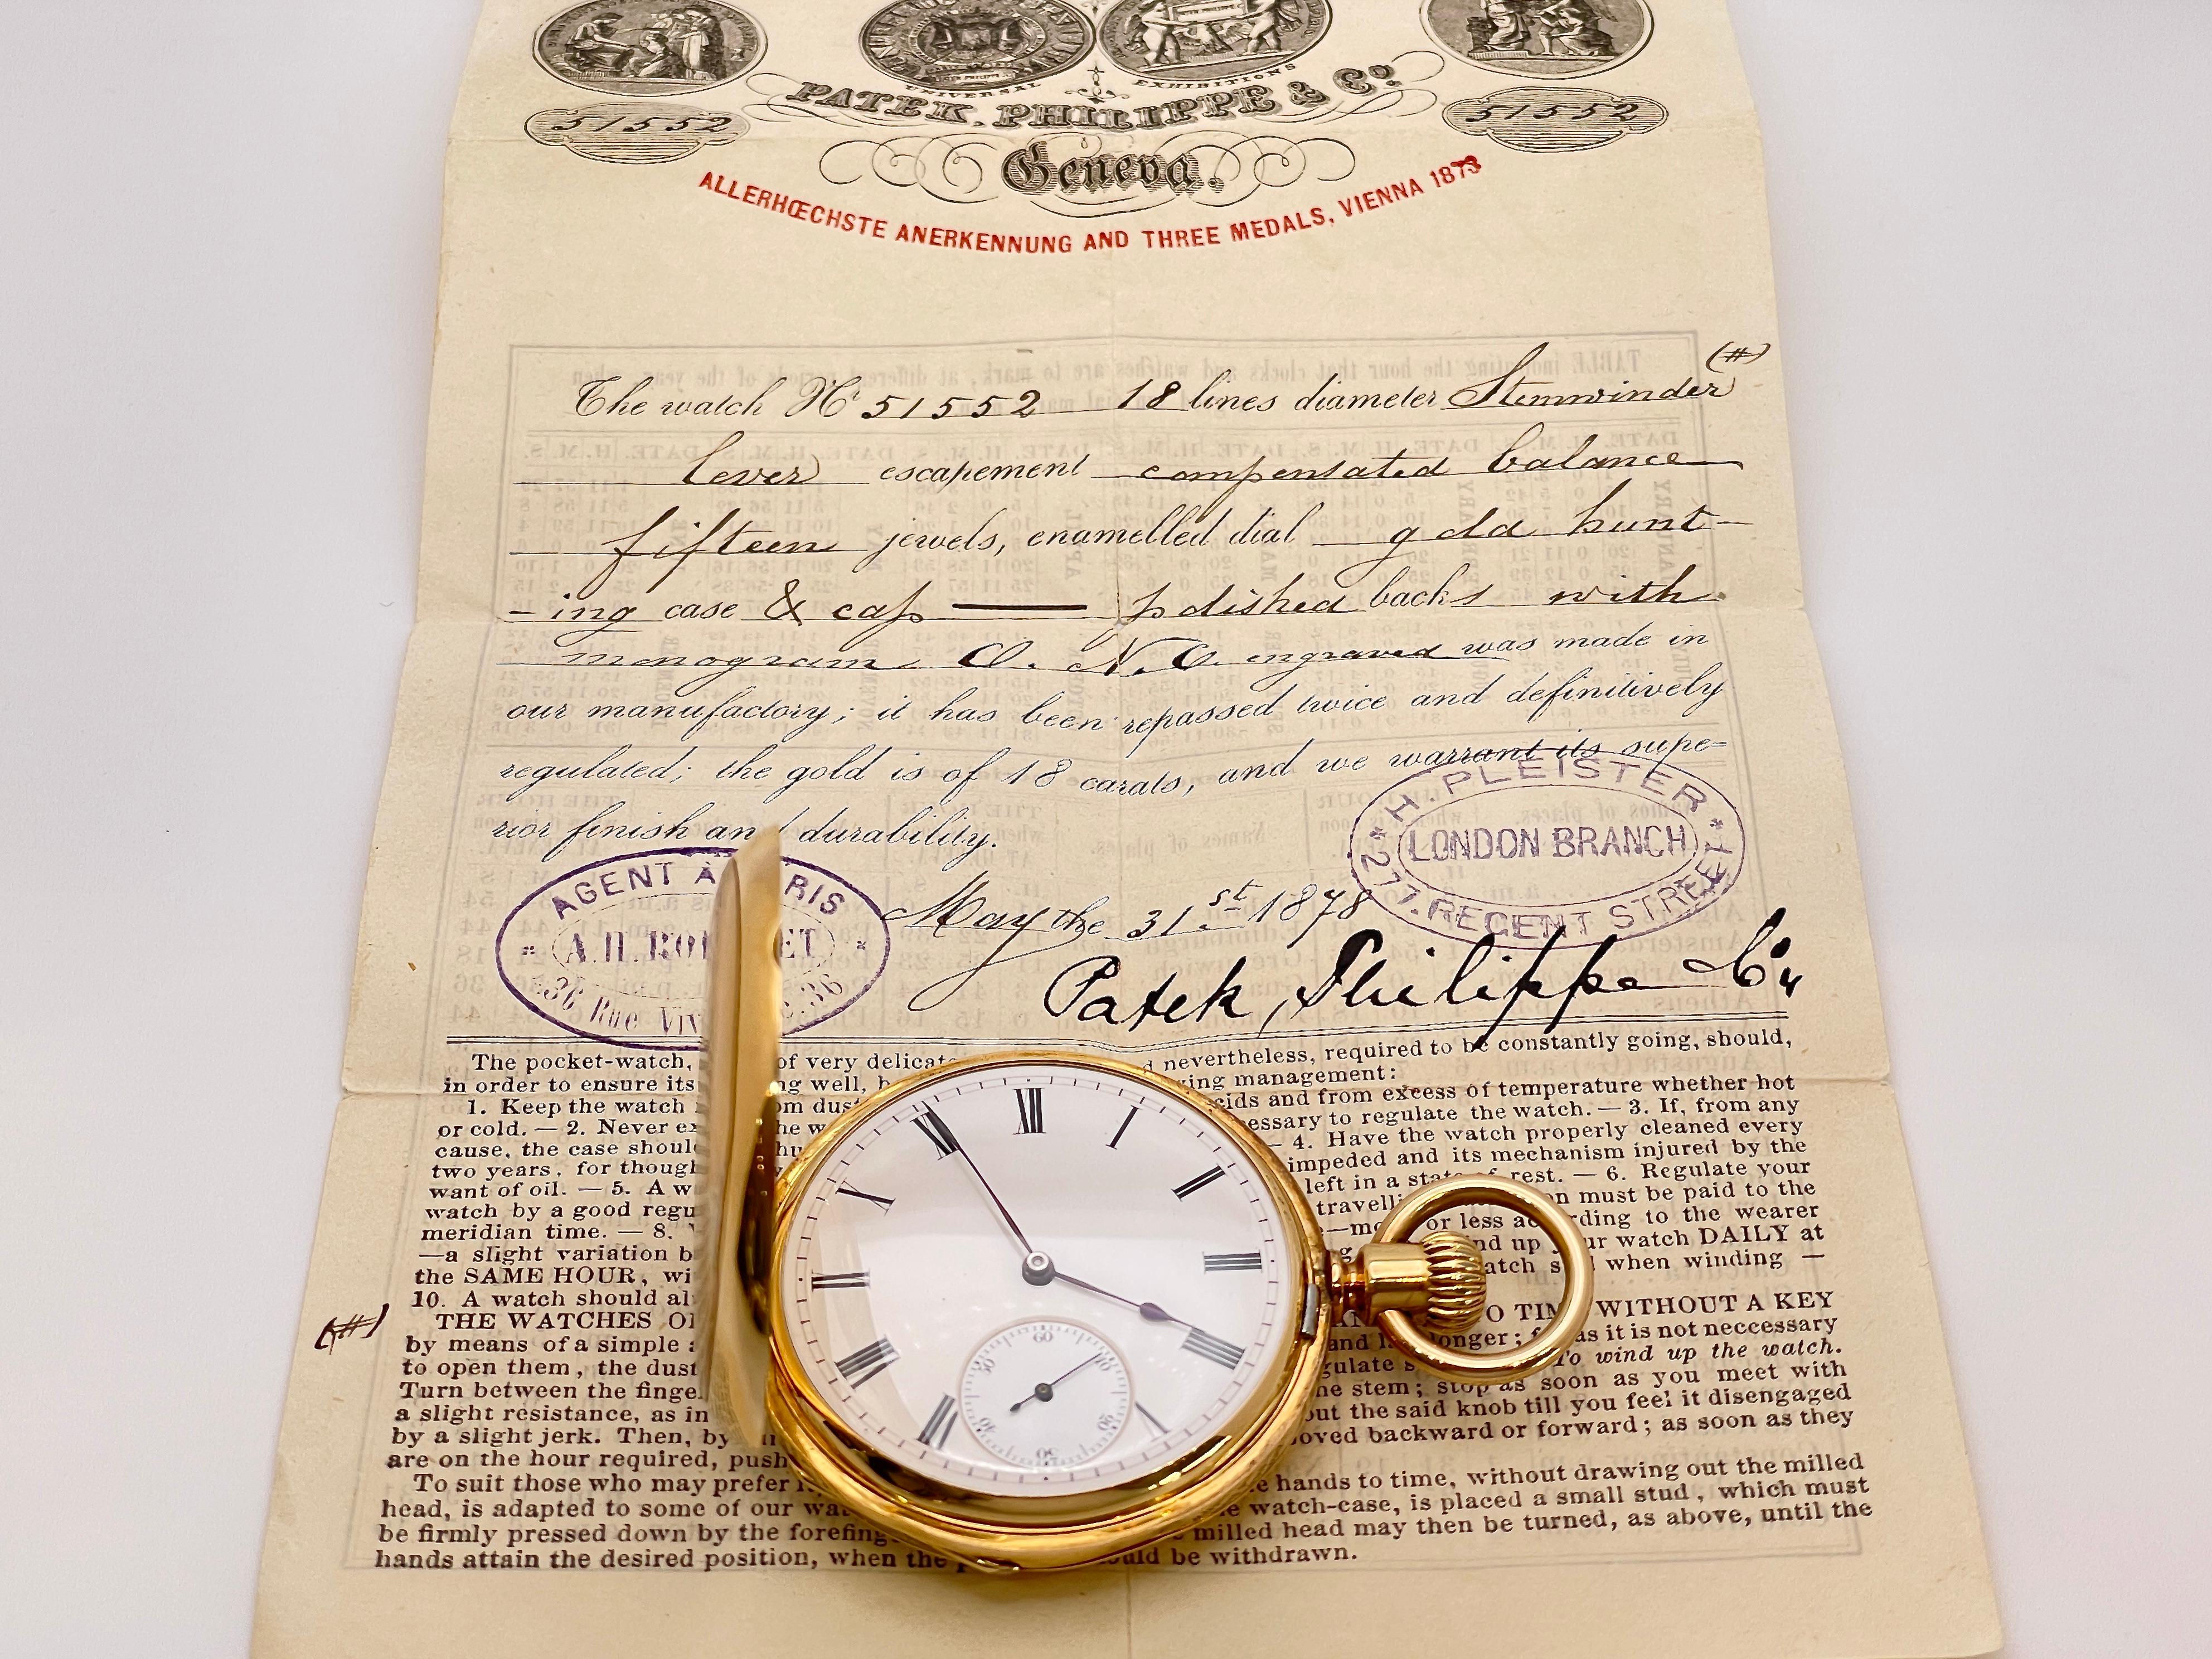 UNIVERSAL EXHIBITIONS
PATEK, PHILIPPE & Co.
51552 51552
Geneva.
ALLERHŒCHSTE ANERKENNUNG AND THREE MEDALS, VIENNA 1873
(#)
The watch No 51552 18 lines diameter Stemwinder
lever escapement compensated balance
fifteen jewels, enamelled dial gold hunt-
-ing case & cap polished backs with
monogram O. N. O. engraved was made in
our manufactory; it has been repassed twice and definitively
regulated; the gold is of 18 carats, and we warrant its supe=
rior finish and durability.
H. PLEISTER
LONDON BRANCH
277. REGENT STREET
AGENT À RIS
A.H. ET
36 Rue 36
May the 31.st 1878
Patek, Philippe & Co
The pocket-watch, of very delicate nevertheless, required to be constantly going, should,
in order to ensure its well, management:
1. Keep the watch dust and from excess of temperature whether hot
or cold. — 2. Never to regulate the watch. — 3. If, from any
cause, the case — 4. Have the watch properly cleaned every
two years, for impeded and its mechanism injured by the
want of oil. — 5. A left in a state of rest. — 6. Regulate your
watch by a good must be paid to the
meridian time. — 8. or less according to the wearer
—a slight variation wind up your watch DAILY at
the SAME HOUR, when winding —
10. A watch should
(#)
THE WATCHES TO TIME WITHOUT A KEY
by means of a simple and longer; as it is not neccessary
to open them, the dust To wind up the watch.
Turn between the stem; stop as soon as you meet with
a slight resistance, as in the said knob till you feel it disengaged
by a slight jerk. Then, by backward or forward; as soon as they
are on the hour required, push
To suit those who may prefer hands to time, without drawing out the milled
head, is adapted to some of our watch-case, is placed a small stud, which must
be firmly pressed down by the milled head may then be turned, as above, until the
hands attain the desired position, when the be withdrawn.
XII
XI I
X II
IX III
VIII IIII
VII V
60
50
40
20
30